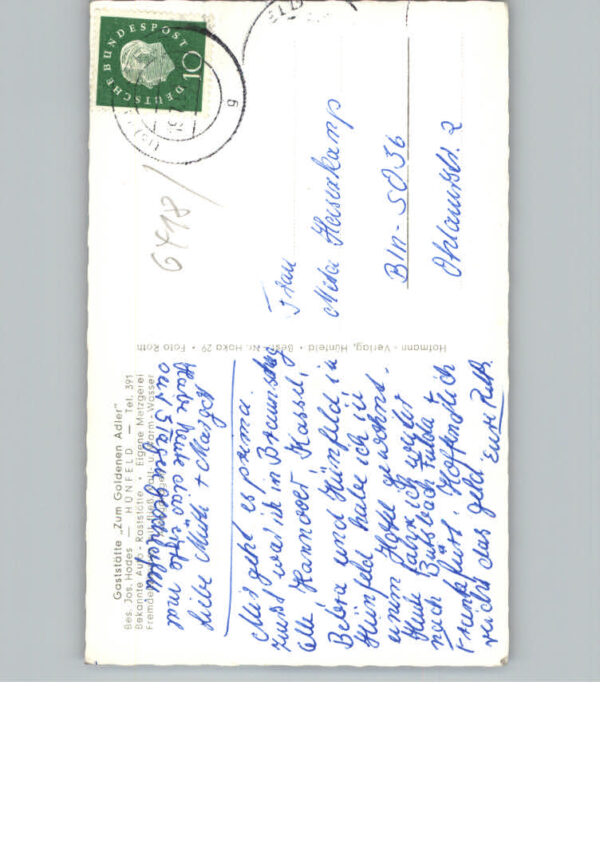 Gaststätte „Zum Goldenen Adler"
Bes. Jos. Hodes — HÜNFELD — Tel. 391
Bekannte Auto-Raststätte · Eigene Metzgerei
Fremdenzimmer · Fließ. Kalt- u. Warm-Wasser
Liebe Mutti + Margot
Habe heute das erste mal
aus 3 Tagen geschlafen
Mir geht es prima.
Zuerst war ich in Braunschw.
Celle, Hannover Kassel,
Bebra und Hünfeld in
Hünfeld habe ich in
einem Hotel gewohnt.
Heute fahre ich weiter
nach Butzbach Fulda +
Frankfurt. Hoffentlich
reicht das Geld. Eure
Hofmann-Verlag, Hünfeld · Best.-Nr. Hoka 29 · Foto Roth
DEUTSCHE BUNDESPOST
10
6418/
Frau
Heiserkamp
Bln-SO36
Ohlauerstr. 2